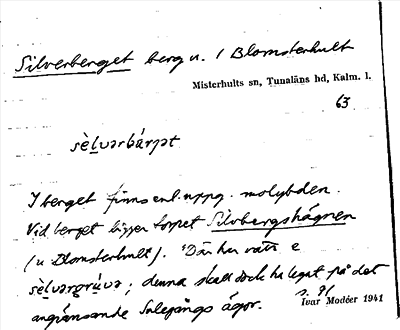 Silverberget berg u. / Blomsterhult
Misterhults sn, Tunaläns hd, Kalm. l.
63
sèlvərbárjət
I berget finns enl. uppg. molybden.
Vid berget ligger torpet Silvbergshägnen
(u Blomsterhult). "Där har vatt e
sèlvərgrúva; denna skall dock ha legat på det
angränsande Salegångs ägor. s. 91
Ivar Modéer 1941